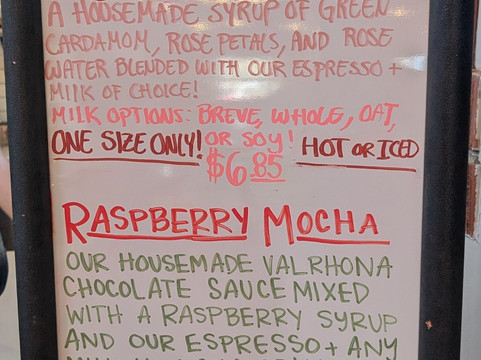 A HOUSEMADE SYRUP OF GREEN
CARDAMOM, ROSE PETALS, AND ROSE
WATER BLENDED WITH OUR ESPRESSO +
MILK OF CHOICE!
MILK OPTIONS: BREVE, WHOLE, OAT,
ONE SIZE ONLY! OR SOY! HOT OR ICED
$6.85
RASPBERRY MOCHA
OUR HOUSEMADE VALRHONA
CHOCOLATE SAUCE MIXED
WITH A RASPBERRY SYRUP
AND OUR ESPRESSO + ANY